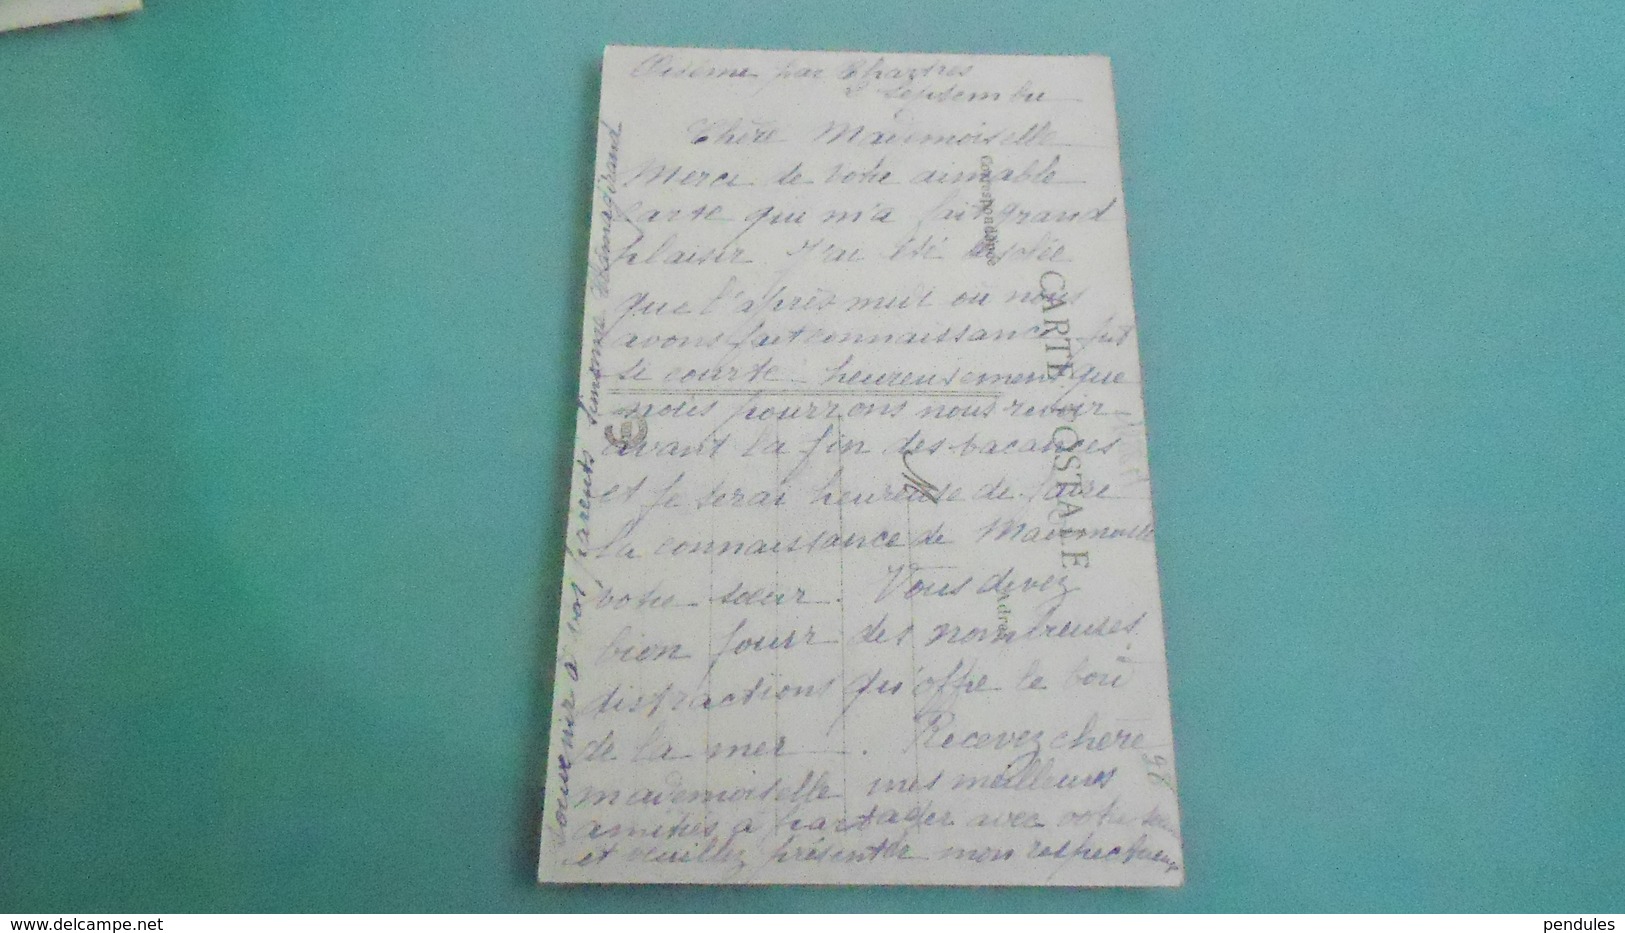 Oisème par Chartres
2 septembre
Chère Mademoiselle
Merci de votre aimable
carte qui m'a fait grand
plaisir J'ai été désolée
que l'après midi où nous
avons fait connaissance fut
si courte heureusement que
nous pourrons nous revoir
avant la fin des vacances
et je serai heureuse de faire
la connaissance de Mademoiselle
votre sœur. Vous devez
bien jouir des nombreuses
distractions qu'offre le bord
de la mer. Recevez chère
mademoiselle mes meilleures
amitiés à partager avec votre sœur
et veuillez présenter mon respectueux
souvenir à vos parents Simonne
CARTE POSTALE
Correspondance
Adresse
M
98
www.delcampe.net
pendules